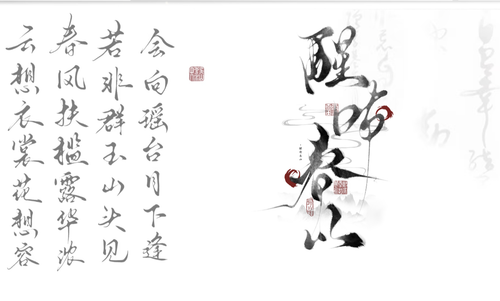 云想衣裳花想容
春风扶槛露华浓
若非群玉山头见
会向瑶台月下逢
醒
春